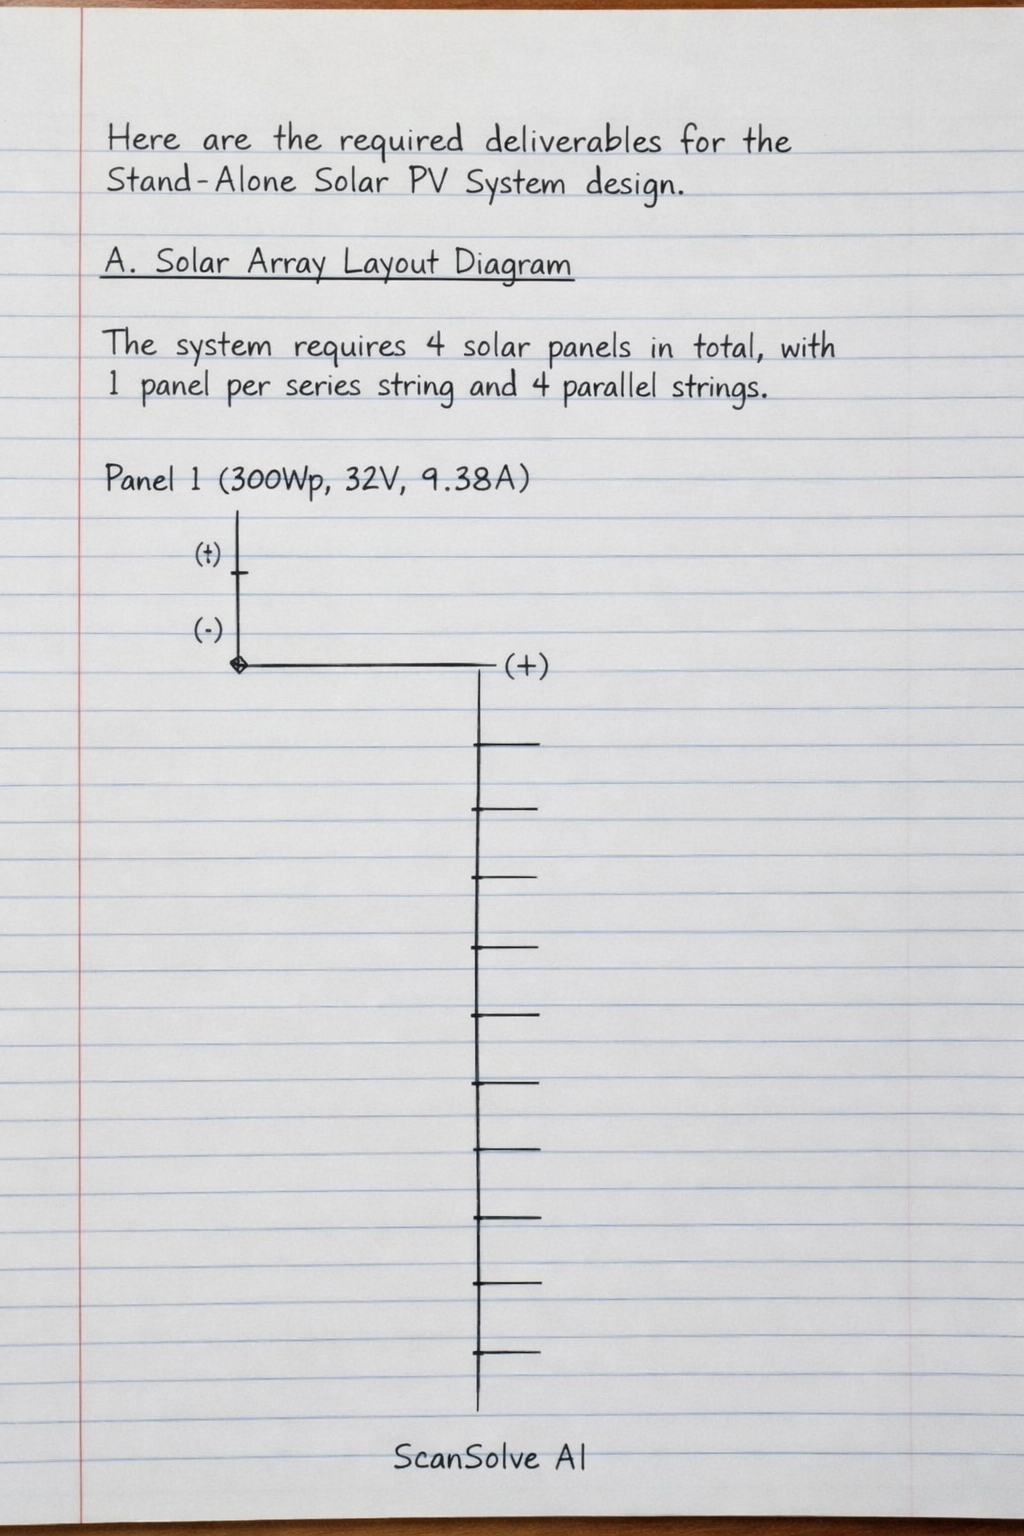 Here are the required deliverables for the
Stand-Alone Solar PV System design.
A. Solar Array Layout Diagram
The system requires 4 solar panels in total, with
1 panel per series string and 4 parallel strings.
Panel 1 (300Wp, 32V, 9.38A)
(+)
(-)
(+)
ScanSolve AI